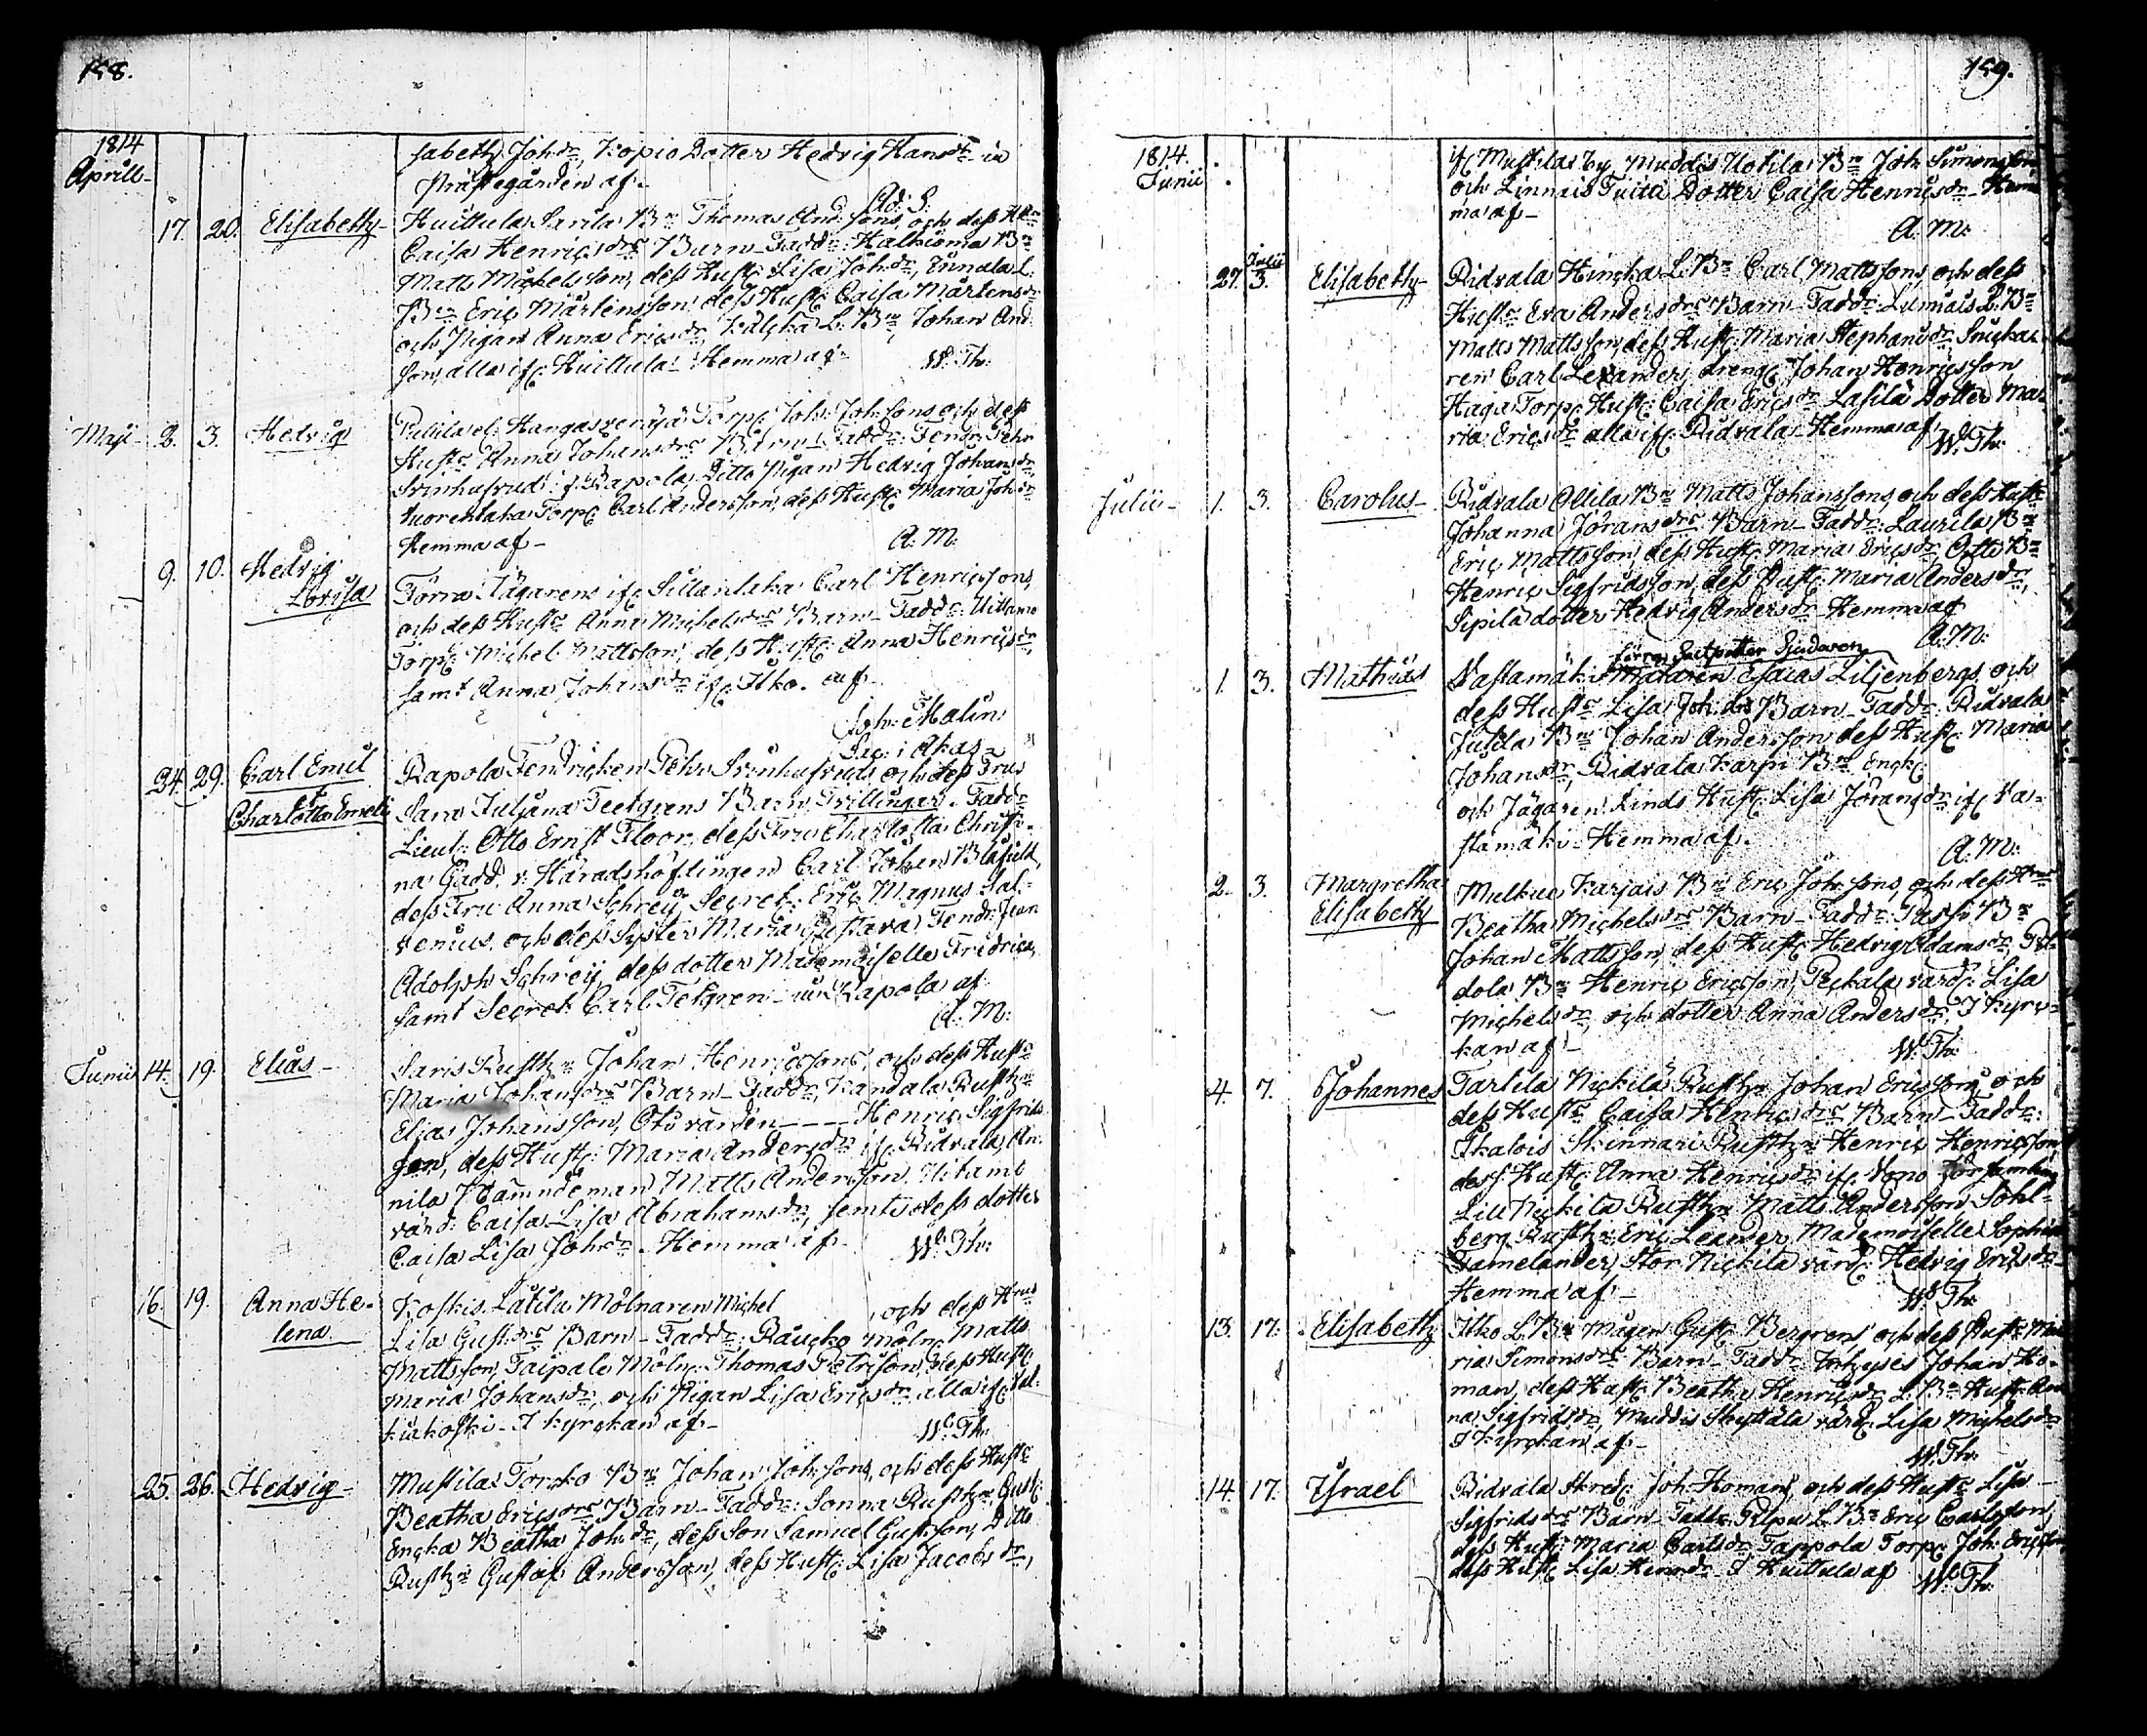 158.
1814
Aprill-
sabeth Johdr, Kopio Dotter Hedvig Hansdr in
Prästegården af.-
Ad: S:
17. 20. Elisabeth- Huittula Sarila Bn Thomas And:sons och dess H:u
Caisa Henricsdrs Barn- Faddr: Halkioma Bn
Matts Michelsson, dess Hust: Lisa Joh:dr, Ennala L.
Bn Eric Mårtensson, dess Hust: Caisa Mårtensdr
och Pigan Anna Ericsdr, L. Bn Johan And:
son, alla if: Huittula- Hemma af- W: Th:
Maji- 2. 3. Hedvig Torp: Joh: Joh:sons och dess
Hustr Anna Johansdrs Barn- Faddr: Fendr: Pehr
Svinhufvud i Rapola, Ditto Pigan Hedvig Johansdr
Torp: Carl Andersson, dess Hust: Maria Joh:dr
Hemma af- A: M:
9. 10. Hedvig
Lovisa Förra Jägarens if: Sillanlaka Carl Henricsons
och dess Hustr Anna Michelsdrs Barn- Faddr: Uittamo
Torp: Michel Mattsson, dess Hust: Anna Henricsdr,
samt Anna Johansdr if: Itko. af-
Joh: Malin
Sac: i Akas
24. 29. Carl Emil
&
Charlotta Emeli Rapola Fendricken Pehr Svinhufvuds och dess Frus
Sara Juliana Teetgrens Barn, Trillingar. Faddr
Lieut: Otto Ernst Floor, dess Fru Charlotta Christi-
na Gadd, v: Häradshöfdingen Carl Johan Blåfield,
dess Fru Anna Schrey, Secret: Eric Magnus Sal-
venius, och dess Syster Maria Gustava, Fendr: Jean
Adolph Schrey, dess dotter Mademoiselle Fredrica,
samt Secret: Carl Tetgren- ur Rapola af
A: M:
Junii 14. 19. Elias - Saris Rusth:n Johan Henricssons, och dess Hustr
Maria Johansdrs Barn- Faddr: Kandala Rusth:n
Elias Johansson, Oto värden- - - - Henric Sigfrids
son, dess Hust: Maria Andersdr if: Ridvala, An-
nila Nämndeman Matts Andersson, Uitamo
värd: Caisa Lisa Abrahamsdr, samt dess dotter
Caisa Lisa Joh:dr- Hemma af- W: Th:
16. 19. Anna He-
lena Koskis Latila Mölnaren Michel , och dess H:us
Lisa Gust:drs Barn- Faddr: Räucko Möln: Matts
Mattsson, Taipale Möln: Thomas Petrisson, dess Hust:
Maria Johansdr, och Pigan Lisa Ericsdr alla if: Val-
kiakoski- I kyrckan af- W: Th:
25. 26. Hedvig- Mustila Torcko Bn Johan Joh:sons, och dess Hustr
Beatha Ericsdrs Barn- Faddr: Sonna Rusth:n Gust:
Encka Beatha Joh:dr, dess Son Samuel Gust:son, Ditto
Rusth:n Gustaf Andersson, dess Hust: Lisa Jacobsdr,
159.
1814.
Junii
if: Mustila by, Muddis Uotila Bn Joh: Simonsson
och Linnais Tuitti Dotter Caisa Henricsdr- Hem-
ma af-
A: M:
27. Julii 3. Elisabeth- Ridvala Hincka L. Bn Carl Mattssons, och dess
Hustr Eva Andersdrs Barn- Faddr: Lumiais L. Bn
Matts Mattsson, dess Hust: Maria Stephansdr, Snicka-
ren Carl Lexander, dreng: Johan Henricsson
Haga Torp: Hust: Caisa Ericsdr, Lasila Dotter Ma-
ria Ericsdr alla if: Ridvala- Hemma af
W: Th:
Julii- 1. 3. Carolus- Ridvala Ollila Bn Matts Johanssons, och dess Hustr
Johanna Jöransdrs Barn- Faddr: Laurila Bn
Eric Mattsson, dess Hust: Maria Ericsdr, Otto Bn
Henric Sigfridsson, dess Hust: Maria Andersdr,
Sipila dotter Hedvig Andersdr- Hemma af
A: M:
1. 3. Mathias Vastamäki Esaias Liljenbergs, och
dess Hustr Lisa Joh:drs Barn- Faddr: Ridvala
Jutila Bn Johan Andersson, dess Hust: Maria
Johansdr, Ridvala Karpi Bn Enck:
och Jägaren Linds Hust: Lisa Jöransdr if: Va-
stamäki- Hemma af.
A: M:
2. 3. Margretha
Elisabeth Mulkue Karjais Bn Eric Joh:sons, och dess H:us
Beatha Michelsdrs Barn- Faddr: Passi Bn
Johan Mattsson, dess Hust: Hedvig Adamsdr,
dola Bn Henric Ericsson, Peckala värd: Lisa
Michelsdr, och dotter Anna Andersdr. I kyrc-
kan af-
W: Th:
4. 7. Johannes Tarttila Nickilä Rusth:n Johan Ericssons och
dess Hustr Caisa Henricsdrs Barn- Faddr:
Skinnari Rusth:n Henric Henricsson,
dess Hust: Anna Henricsdr if: församling
Lill Nickila Rusth:n Matts Andersson Sohl-
berg, Rusth:n Eric Leander, Mademoiselle Sophia
Stor Nickila värd: Hedvig Ericsdr
Hemma af- W: Th:
13. 17. Elisabeth Itko L. Bn Mågen Gust: Bergrens och dess Hustr Ma-
ria Simonsdrs Barn- Faddr: Inhyses Johan Ho-
man, dess Hust: Beatha Henricsdr, L: Bn Hust: An-
na Sigfridsdr, Muddis Skyttälä värd: Lisa Michelsdr
I kyrckan af-
W: Th:
14. 17. Ysrael Ridvala Skred: Joh: Homans, och dess Hustr Lisa
Sigfridsdrs Barn- Faddr: L. Bn Eric Carlsson,
dess Hust: Maria Carlsdr, Tappola Torp: Joh: Ericsson
dess Hust: Lisa Henr:dr- I Huittula af W: Th: